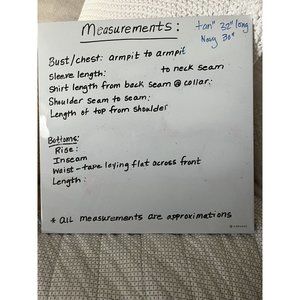 Measurements:
tan" 32" long
Navy 30"
Bust/chest: armpit to armpit
Sleeve length: to neck seam
Shirt length from back seam @ collar:
Shoulder seam to seam:
Length of top from shoulder
Bottoms:
Rise:
Inseam
Waist - tape laying flat across front
Length:
* all measurements are approximations